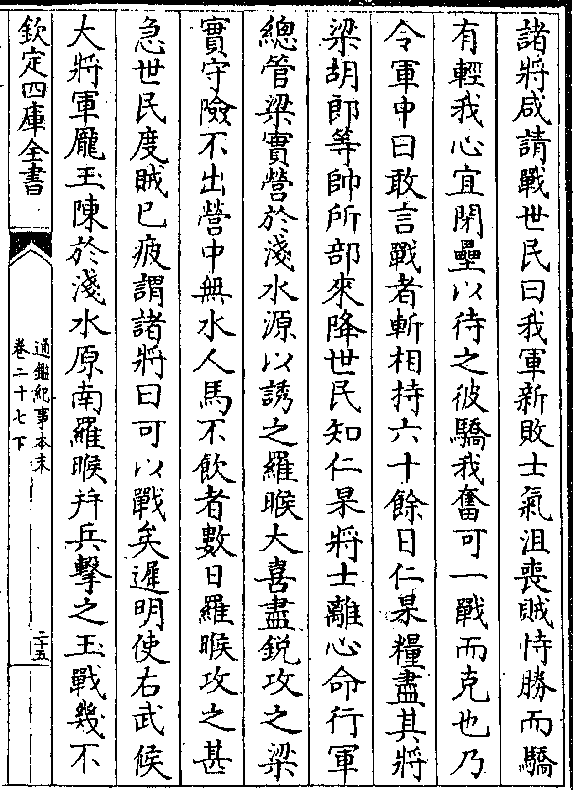 諸將咸請戰世民曰我軍新敗士氣沮喪賊恃勝而驕
有輕我心宜閉壘以待之彼驕我奮可一戰而克也乃
令軍中曰敢言戰者斬相持六十餘日仁杲糧盡其將
梁胡郎等帥所部來降世民知仁杲將士離心命行軍
總管梁實營於淺水源以誘之羅睺大喜盡銳攻之梁
實守險不出營中無水人馬不飲者數日羅睺攻之甚
急世民度賊已疲謂諸將曰可以戰矣遲明使右武候
大將軍龐玉陳於淺水原南羅睺并兵擊之玉戰幾不
欽定四庫全書
通鑑紀事本末
卷二十七下
二十五